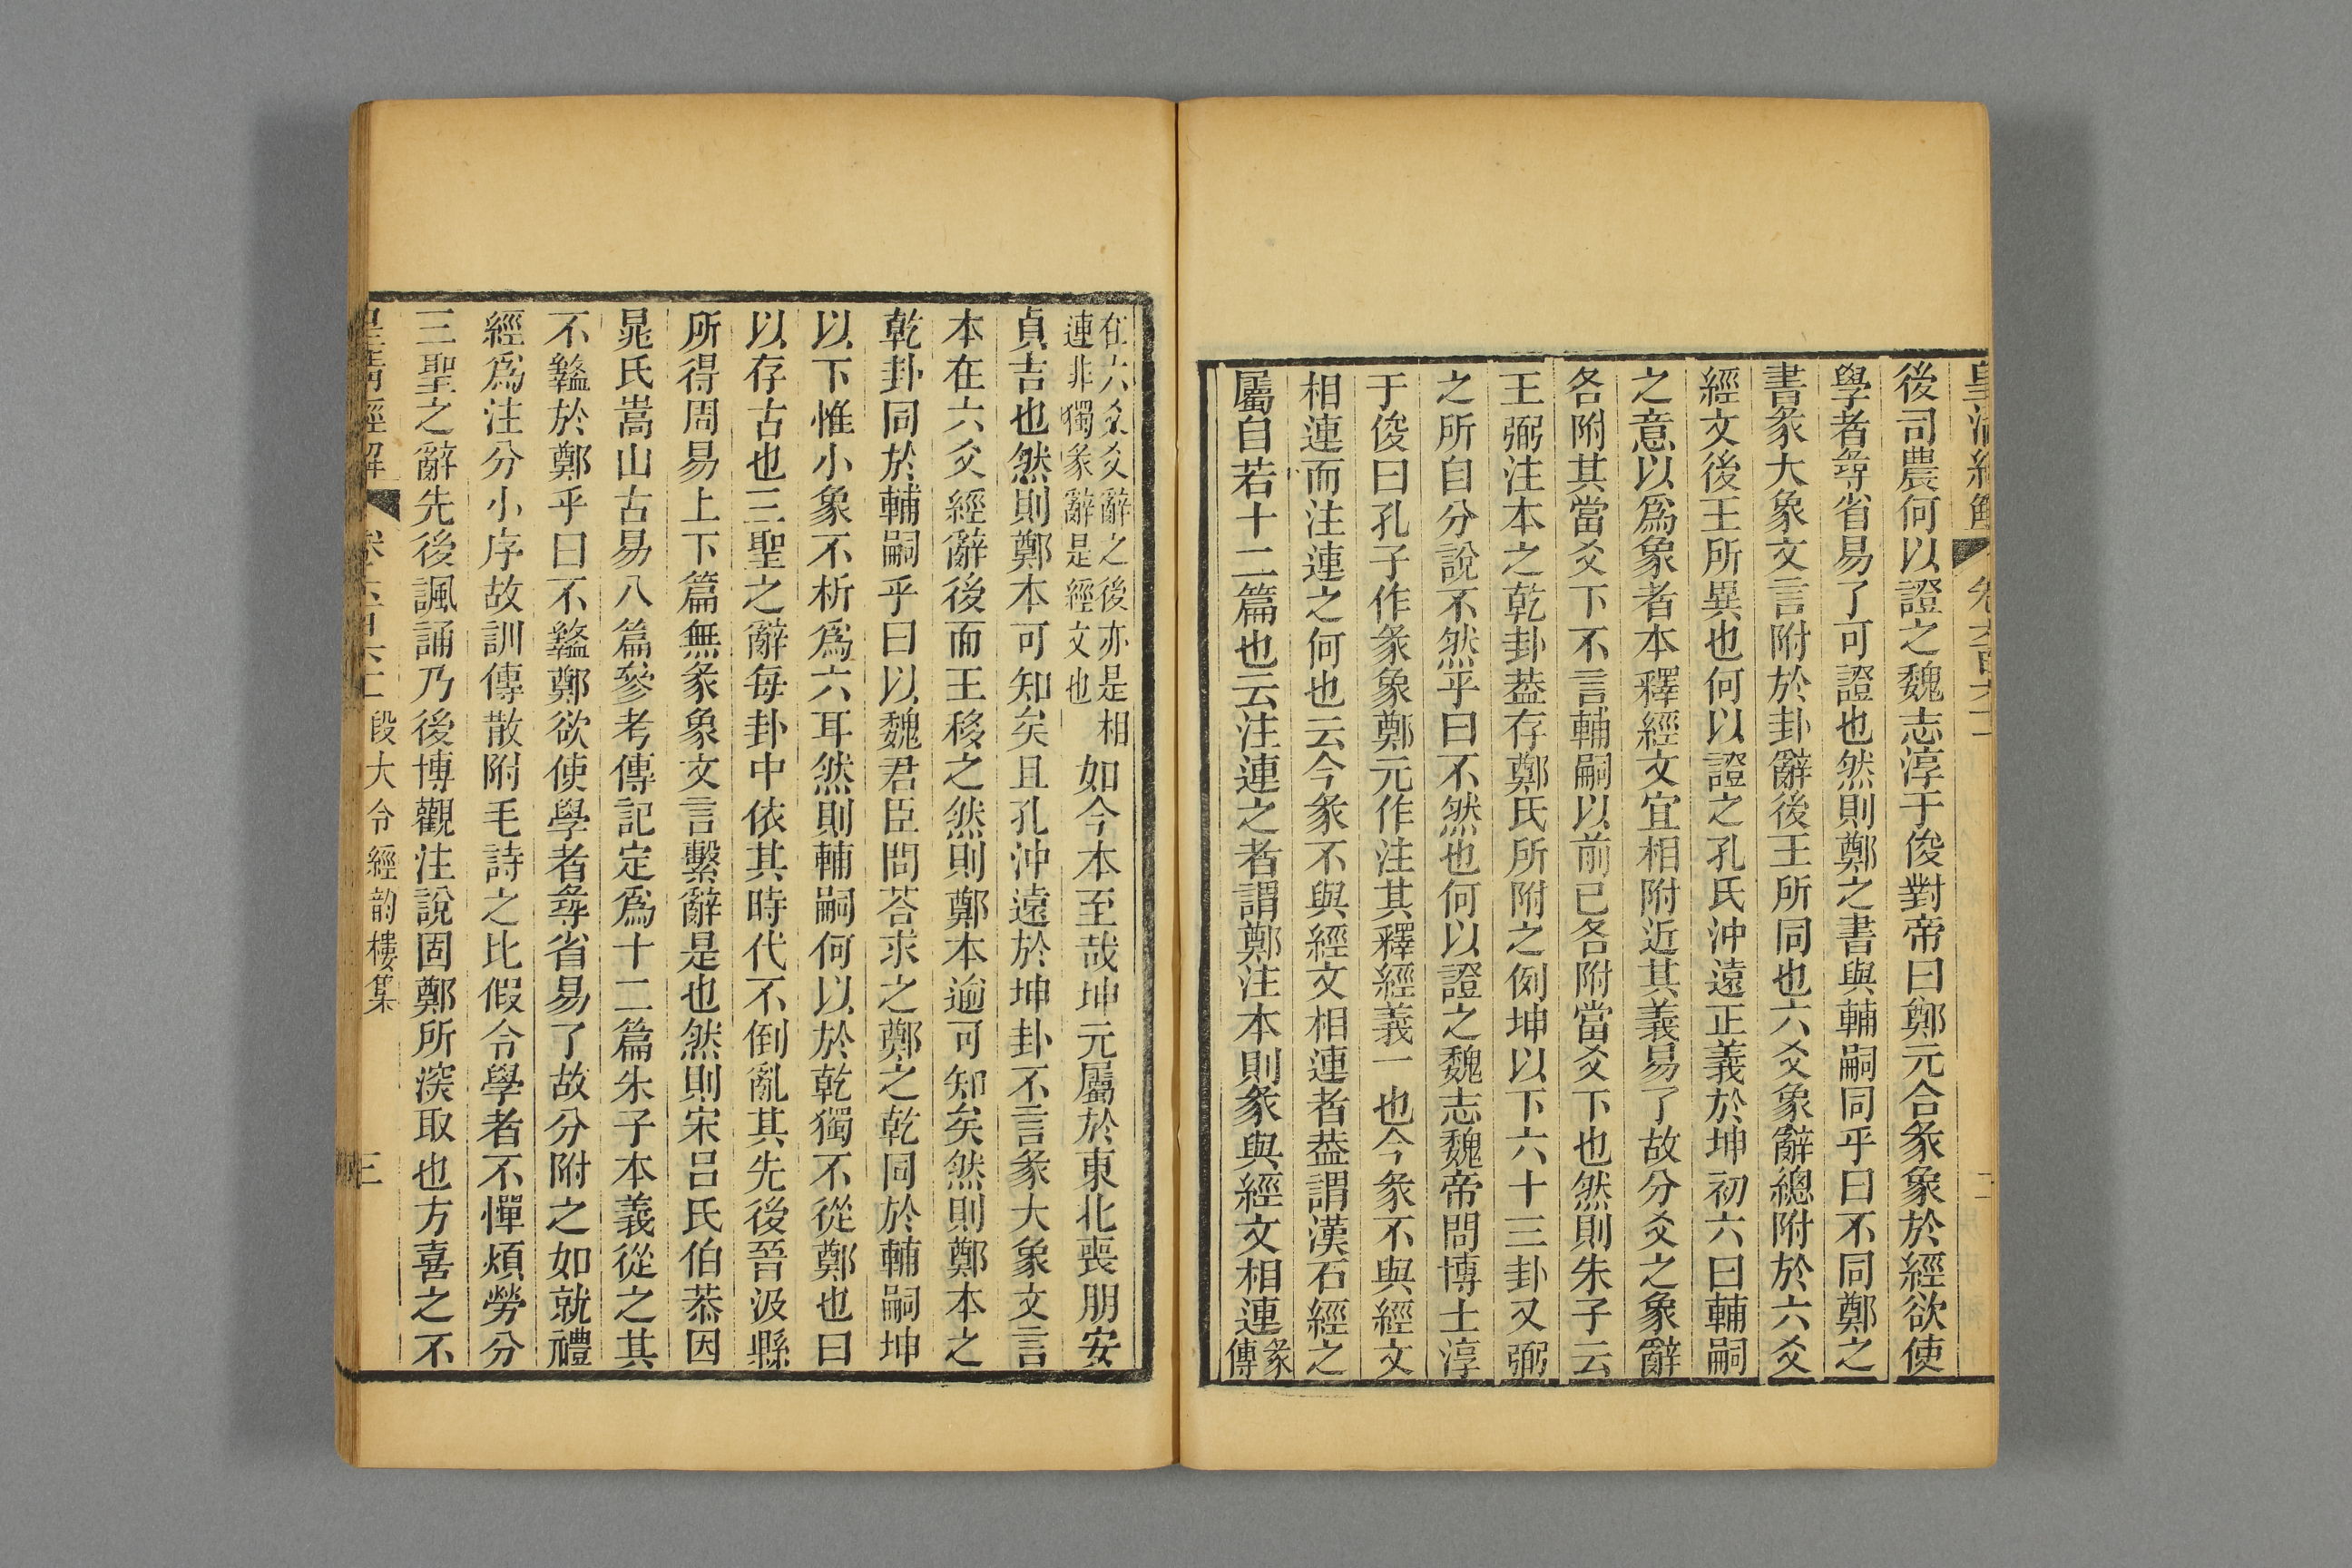 皇清經解 卷六百六十二 二
後司農何以證之魏志淳于俊對帝曰鄭元合彖象於經欲使
學者尋省易了可證也然則鄭之書與輔嗣同乎曰不同鄭之
書彖大象文言附於卦辭後王所同也六爻象辭總附於六爻
經文後王所異也何以證之孔氏沖遠正義於坤初六曰輔嗣
之意以爲象者本釋經文宜相附近其義易了故分爻之象辭
各附其當爻下不言輔嗣以前已各附當爻下也然則朱子云
王弼注本之乾卦葢存鄭氏所附之例坤以下六十三卦又弼
之所自分說不然乎曰不然也何以證之魏志魏帝問博士淳
于俊曰孔子作彖象鄭元作注其釋經義一也今彖不與經文
相連而注連之何也云今彖不與經文相連者葢謂漢石經之
屬自若十二篇也云注連之者謂鄭注本則彖與經文相連彖傳
在六爻爻辭之後亦是相
連非獨彖辭是經文也
如今本至哉坤元屬於東北喪朋安
貞吉也然則鄭本可知矣且孔沖遠於坤卦不言彖大象文言
本在六爻經辭後而王移之然則鄭本逾可知矣然則鄭本之
乾卦同於輔嗣乎曰以魏君臣問荅求之鄭之乾同於輔嗣坤
以下惟小象不析爲六耳然則輔嗣何以於乾獨不從鄭也曰
以存古也三聖之辭每卦中依其時代不倒亂其先後晉汲縣
所得周易上下篇無彖象文言繫辭是也然則宋呂氏伯恭因
晁氏嵩山古易八篇參考傳記定爲十二篇朱子本義從之其
不盭於鄭乎曰不盭鄭欲使學者尋省易了故分附之如就禮
經爲注分小序故訓傳散附毛詩之比假令學者不憚煩勞分
三聖之辭先後諷誦乃後博觀注說固鄭所深取也方喜之不
皇清經解 卷六百六十二 段大令經韵樓集 三